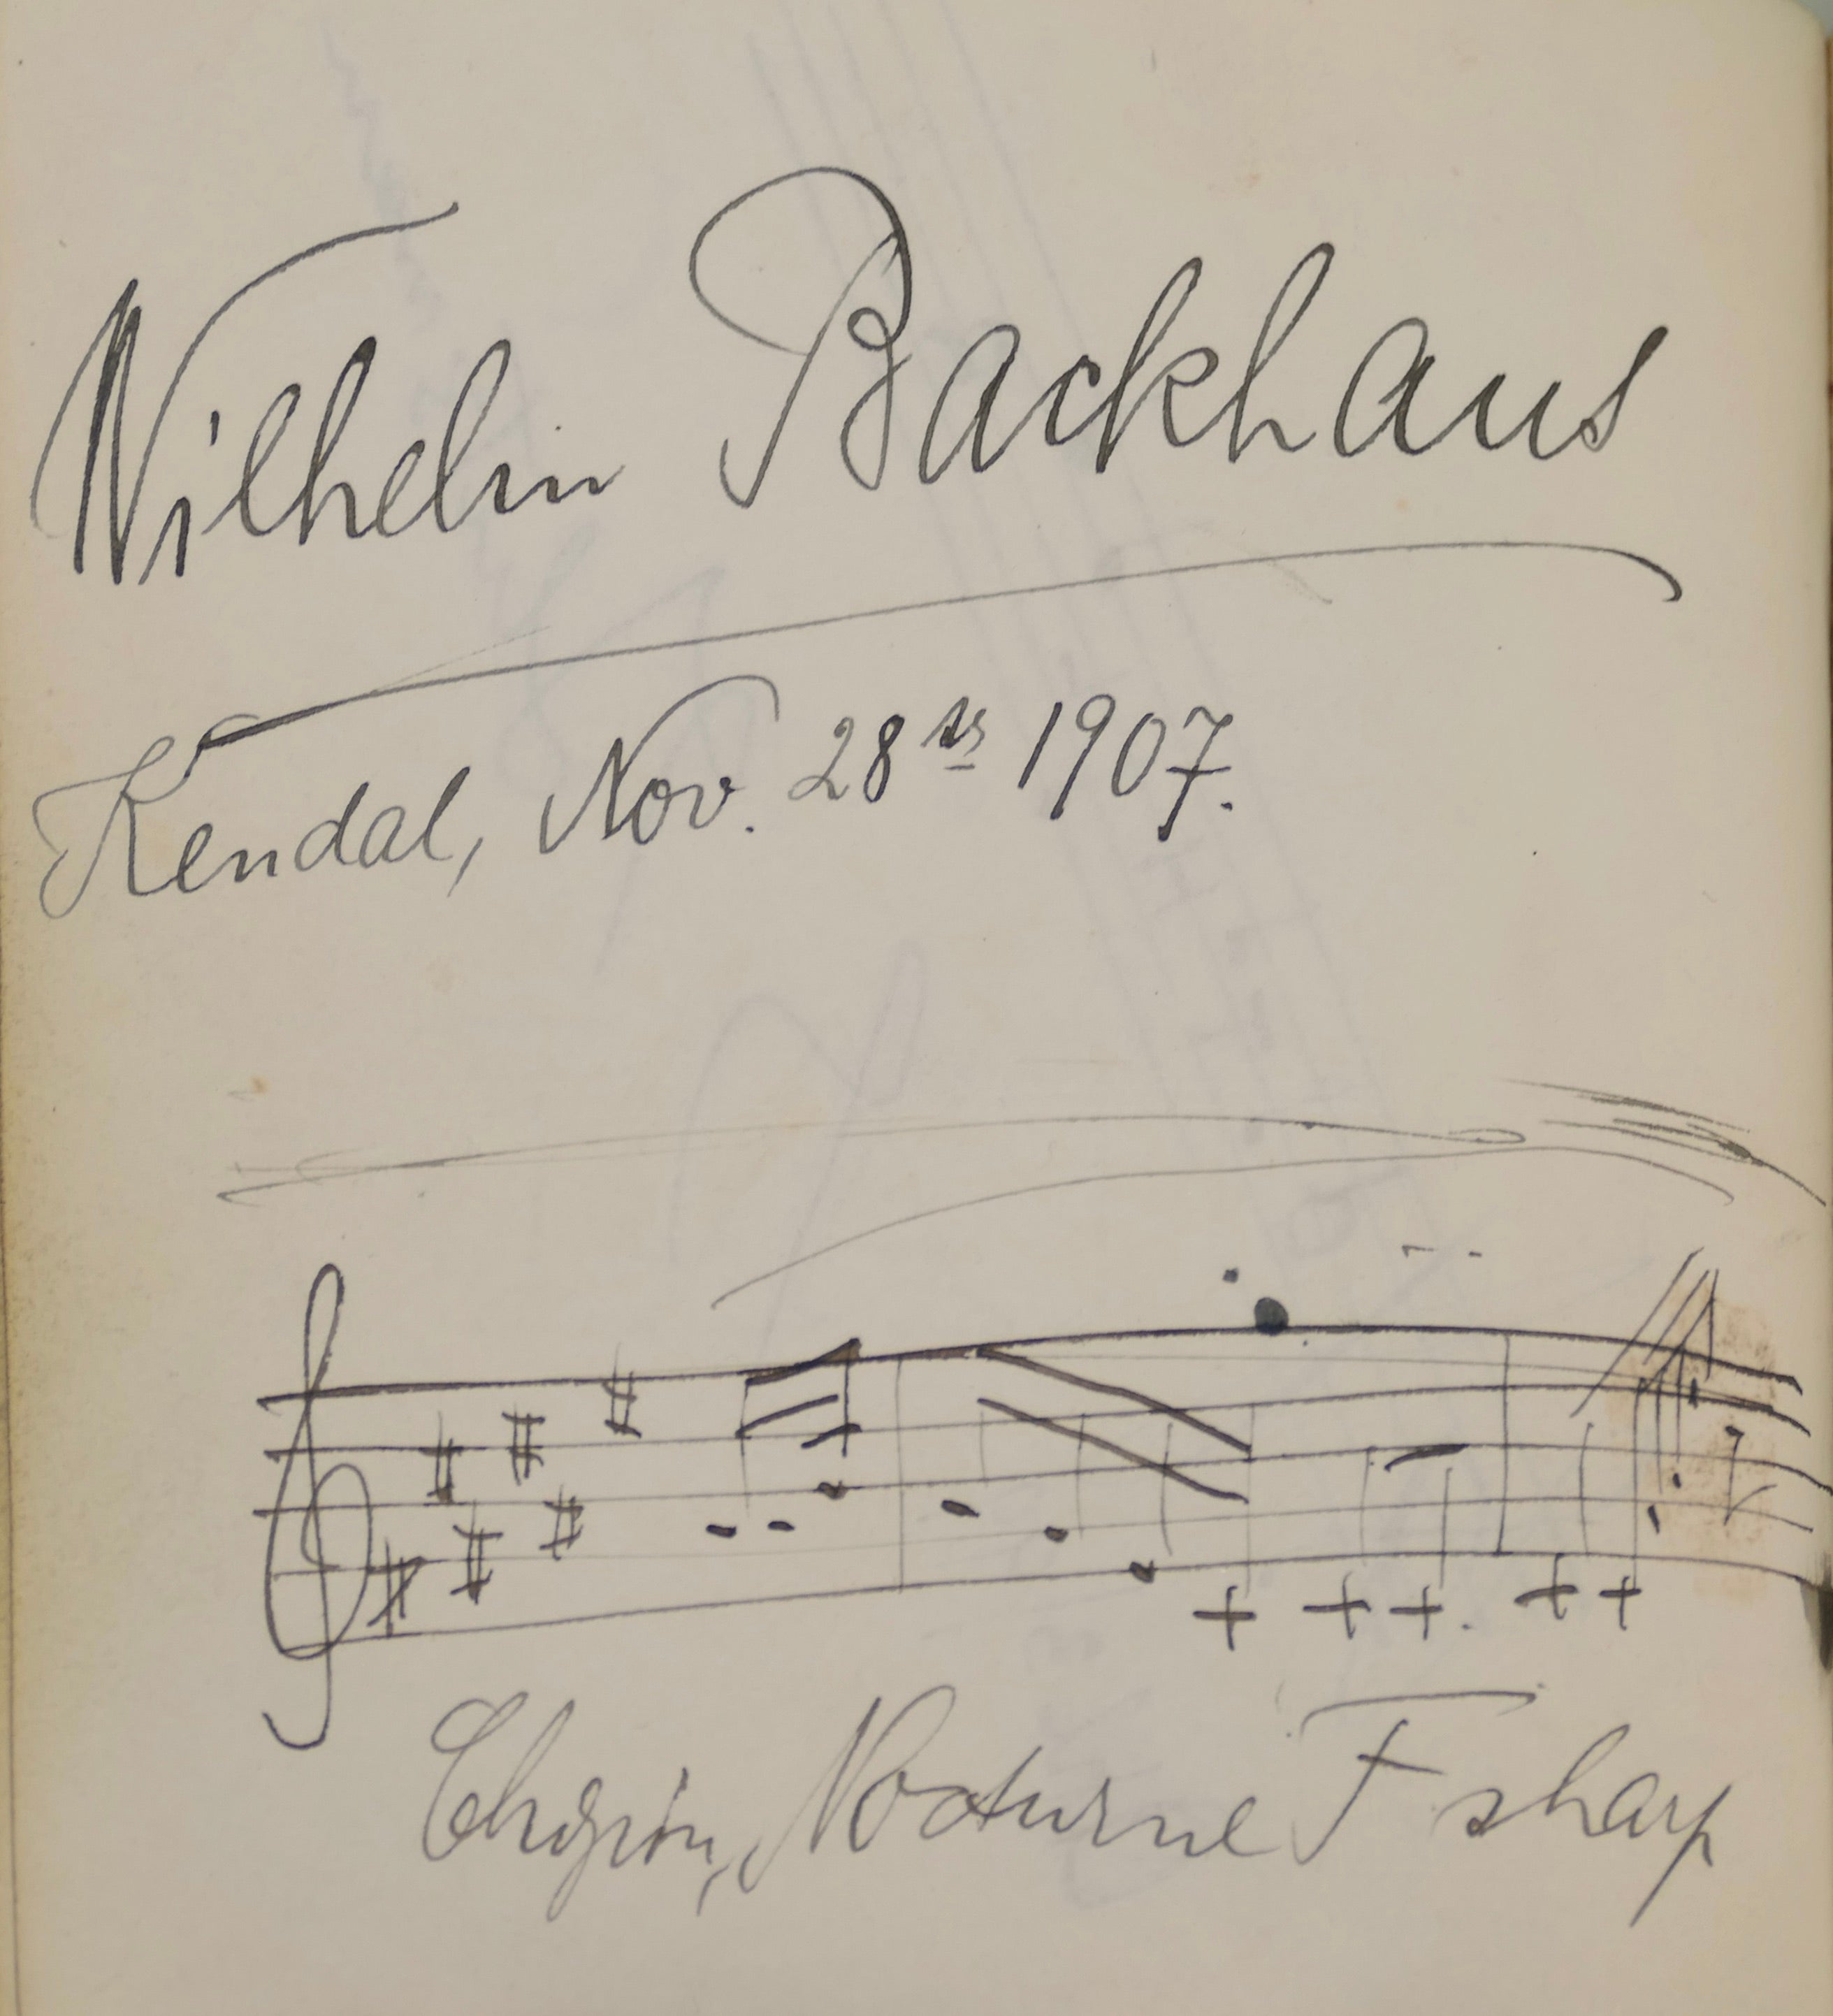 Wilhelm Backhaus
Kendal, Nov. 28th 1907.
Chopin, Nocturne F sharp